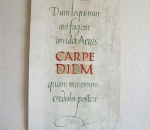 Dum loquimur
fugerit
invida Aetas
CARPE
DIEM
quam minimum
credula postero